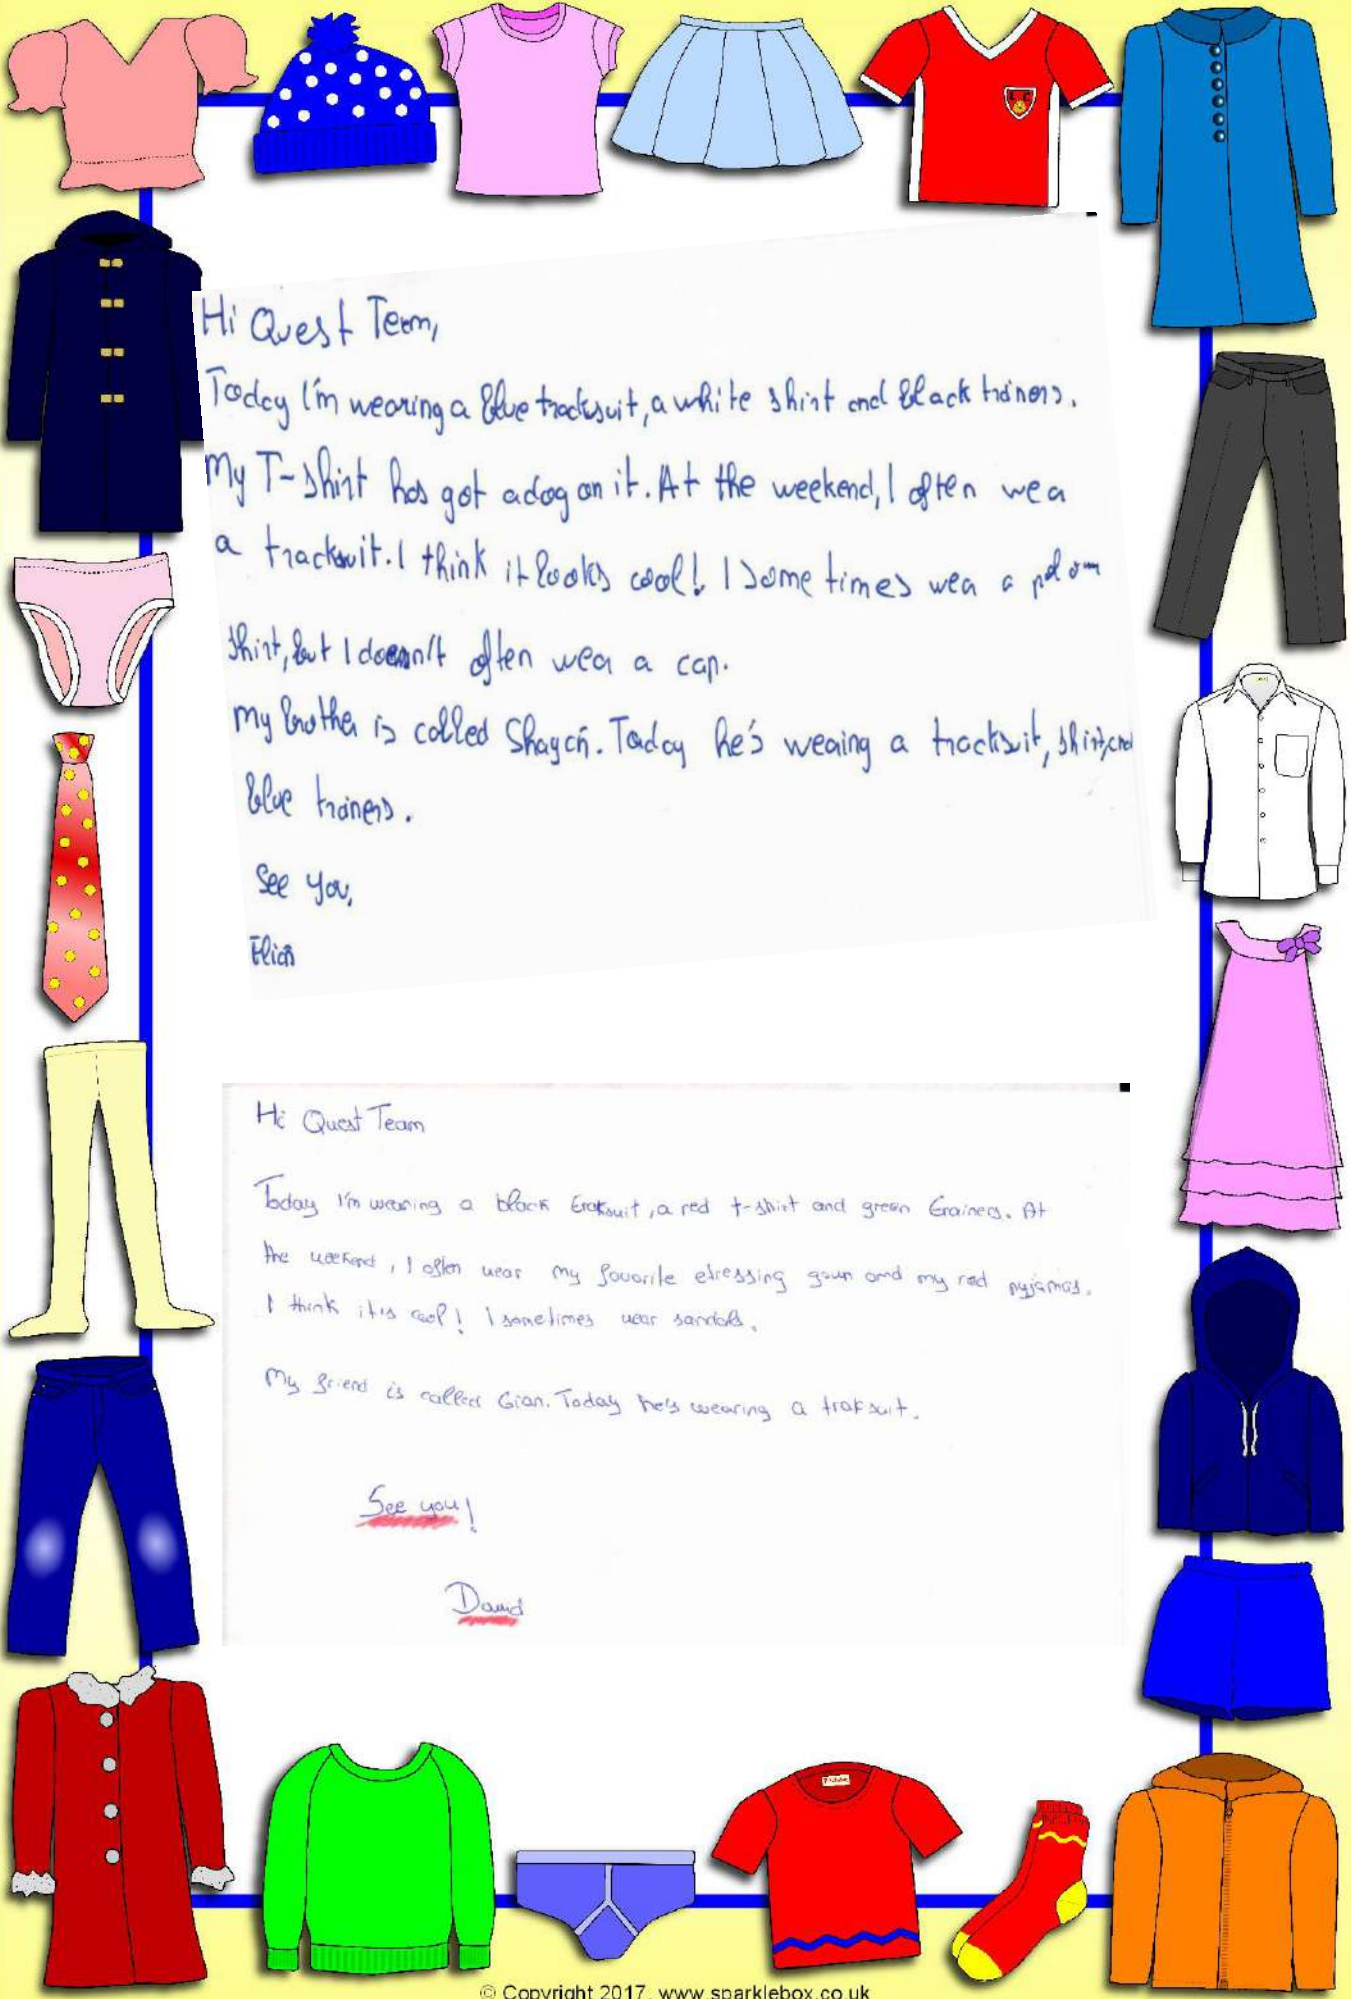 Hi Quest Team,
Today I'm wearing a blue tracksuit, a white shirt and black trainers.
My T-shirt has got a dog on it. At the weekend, I often wea
a tracksuit. I think it looks cool! I sometimes wea a
shirt, but I doesn't often wea a cap.
My brother is called Shayan. Today he's weaing a tracksuit, shirt, and
blue trainers.
See you,
Elian
Hi Quest Team
Today I'm wearing a black traksuit, a red t-shirt and green trainers. At
the weekend, I often wear my favorite dressing goun and my red pyjamas.
I think it is cool! I sometimes wear sandals.
My friend is called Gian. Today he's wearing a traksuit.
See you!
David
© Copyright 2017, www.sparklebox.co.uk